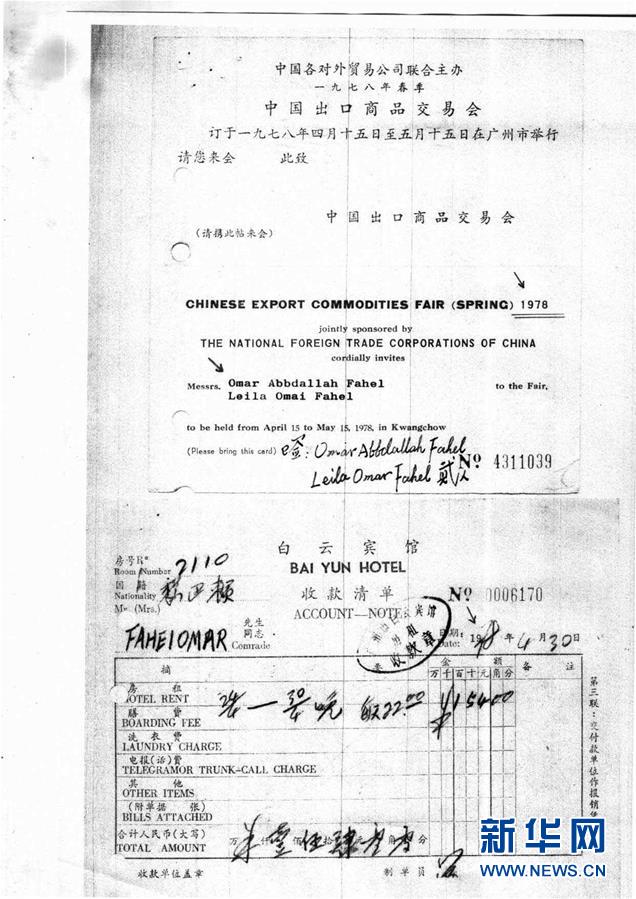 中国各对外贸易公司联合主办
一九七八年春季
中国出口商品交易会
订于一九七八年四月十五日至五月十五日在广州市举行
请您来会 此致
中国出口商品交易会
(请携此帖来会)
CHINESE EXPORT COMMODITIES FAIR (SPRING) 1978
jointly sponsored by
THE NATIONAL FOREIGN TRADE CORPORATIONS OF CHINA
cordially invites
Messrs. Omar Abbdallah Fahel to the Fair,
Leila Omai Fahel
to be held from April 15 to May 15, 1978, in Kwangchow
(Please bring this card) Omar Abbdallah Fahel
Nº 4311039
Leila Omar Fahel
白云宾馆
BAI YUN HOTEL
房号Rº 2110
Room Number
国籍
Nationality
Mr (Mrs.)
收款清单
ACCOUNT—NOTE
Nº 0006170
收款章
FAHEIOMAR 先生
同志
Comrade
日期: 1978年4月30日
Date:
摘 要 金额 备注
万千百十元角分
房租 24/4—30/4晚 每天22.00 ¥15400
HOTEL RENT
膳费
BOARDING FEE
洗衣费
LAUNDRY CHARGE
电报(话)费
TELEGRAMOR TRUNK-CALL CHARGE
其他
OTHER ITEMS
(附单据 张)
BILLS ATTACHED
合计人民币(大写)
TOTAL AMOUNT
收款单位盖章 制单员
第三联:交付款单位作报销
新华网
WWW.NEWS.CN